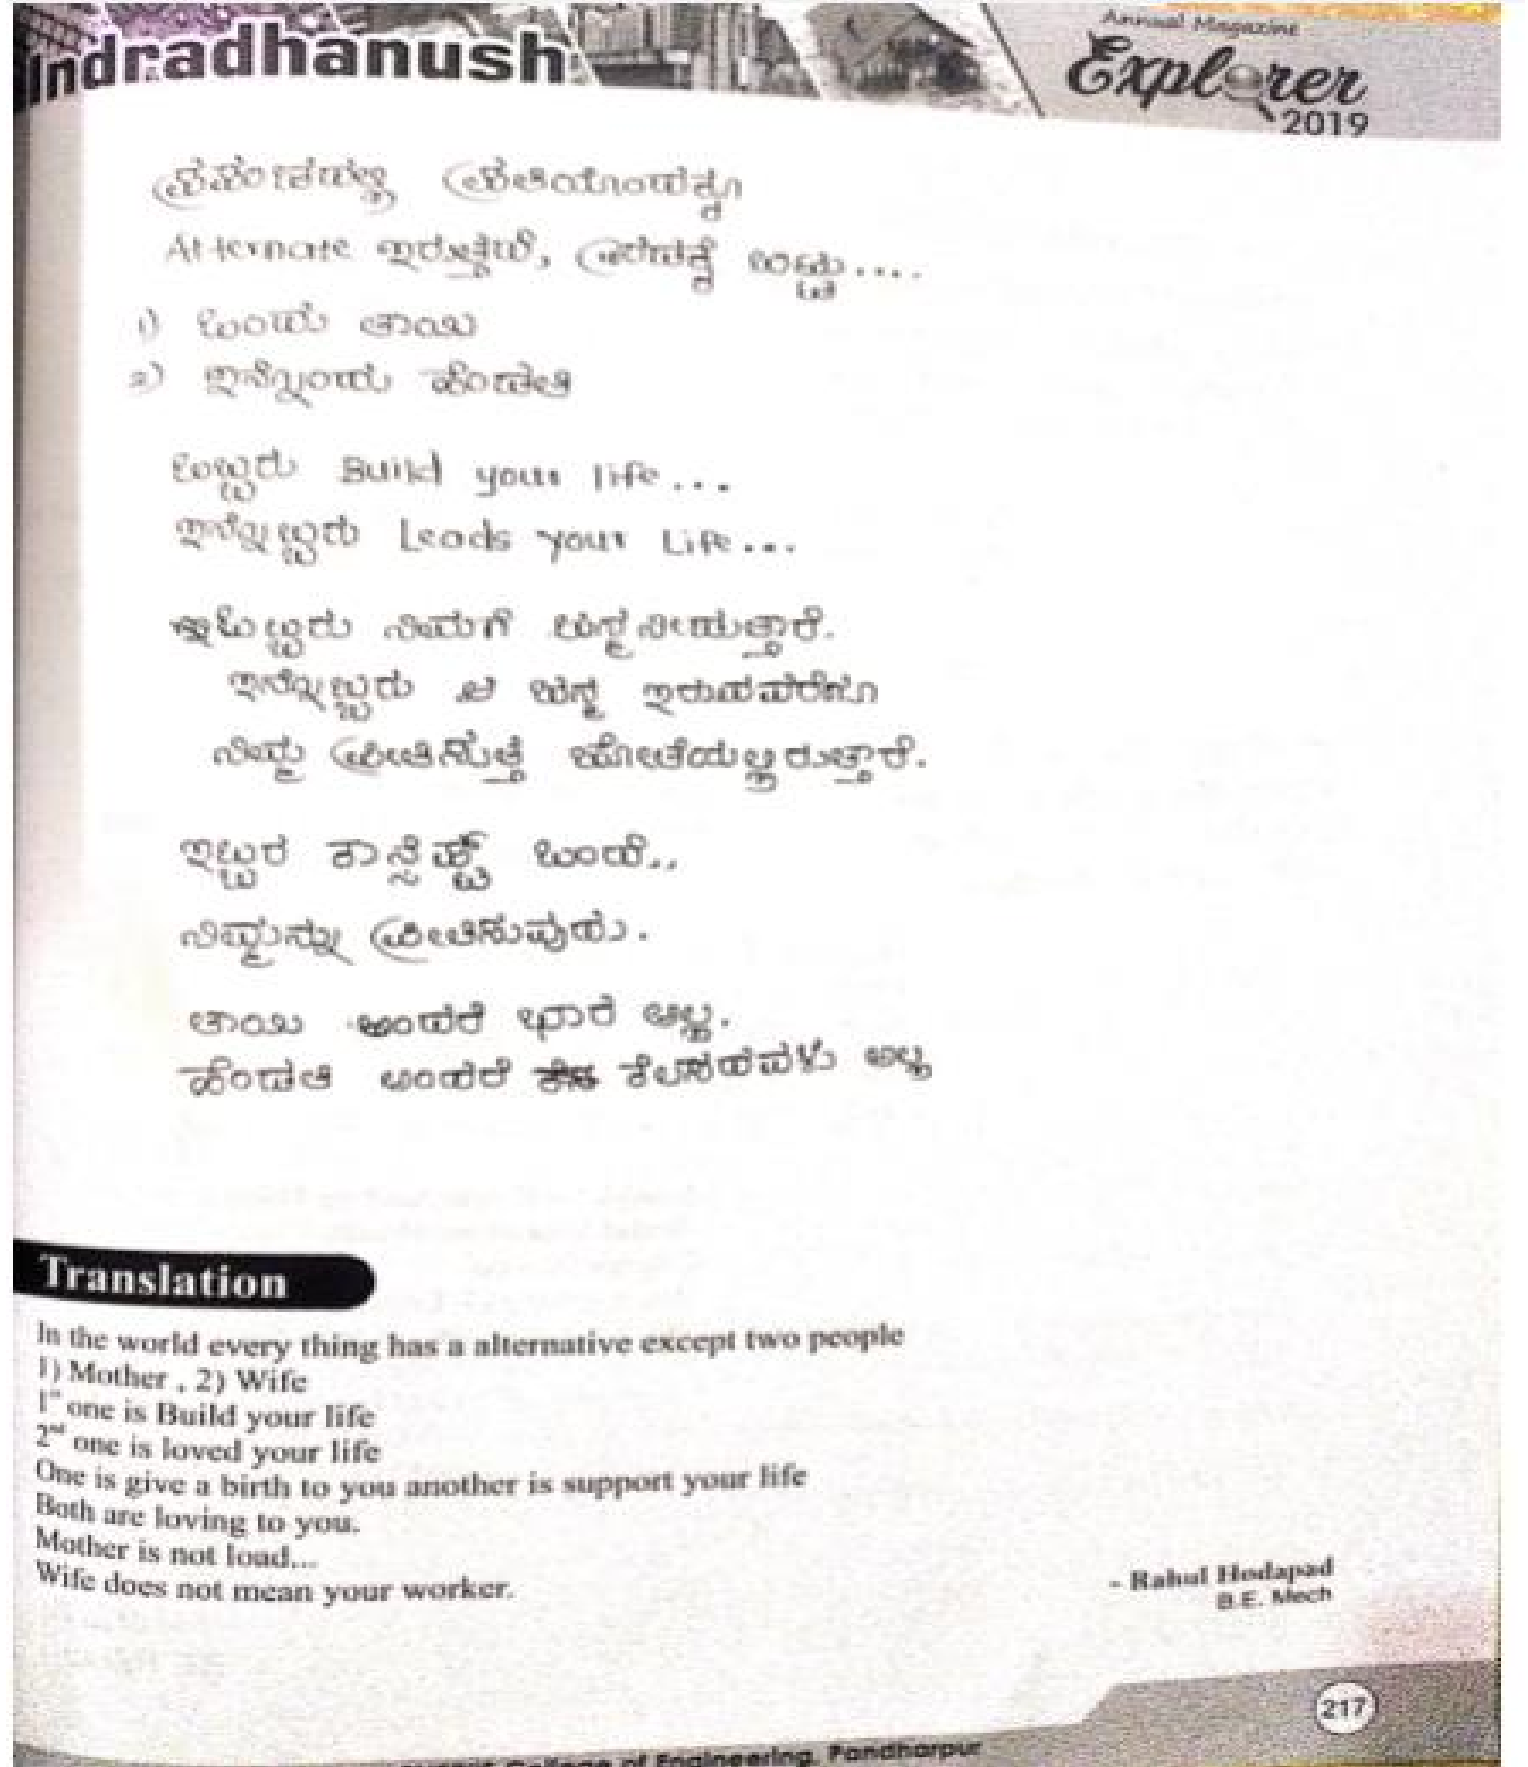 Indradhanush
Annual Magazine
Explorer
2019
ಪ್ರಪಂಚದಲ್ಲಿ ಪ್ರತಿಯೊಂದಕ್ಕೂ
Alternate ಇರುತ್ತದೆ, ಬಿಟ್ಟು....
1) ಒಂದು ತಾಯಿ
2) ಇನ್ನೊಂದು ಹೆಂಡತಿ
ಒಬ್ಬರು Build your life...
ಇನ್ನೊಬ್ಬರು Leads your Life...
ಒಬ್ಬರು ನಿಮಗೆ ಜನ್ಮನೀಡುತ್ತಾರೆ.
ಇನ್ನೊಬ್ಬರು ಈ ಜನ್ಮ ಇರುವವರೆಗೂ
ನಿಮ್ಮ ಪ್ರೀತಿಸುತ್ತ ಜೋತೆಯಲ್ಲಿರುತ್ತಾರೆ.
ಇಬ್ಬರ ಕಾನ್ಸೆಪ್ಟ್ ಒಂದೆ..
ನಿಮ್ಮನ್ನು ಪ್ರೀತಿಸುವುದು.
ತಾಯಿ ಅಂದರೆ ಭಾರ ಅಲ್ಲ.
ಹೆಂಡತಿ ಅಂದರೆ ಕೆಲಸದವಳು ಅಲ್ಲ
Translation
In the world every thing has a alternative except two people
1) Mother , 2) Wife
1st one is Build your life
2nd one is loved your life
One is give a birth to you another is support your life
Both are loving to you.
Mother is not load...
Wife does not mean your worker.
- Rahul Hodapad
B.E. Mech
217
College of Engineering, Pandharpur